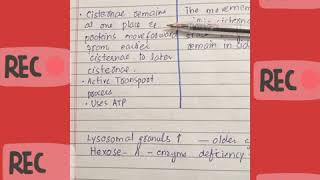 REC
REC
• Cisternae remains
at one place &
proteins move forward
from earlier
cisternae to later
cisternae.
• Active Transport
process
• Uses ATP
The movemen
remain in
Lysosomal granules ↑ — older
Hexose - A - enzyme deficiency
REC
REC